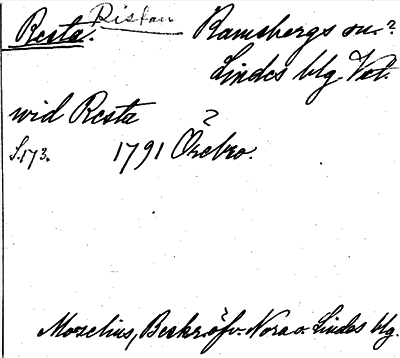 Resta. Ristan Ramsbergs sn.?
Lindes blg Vstm.
wid Resta
S.173. 1791 Örebro. ?
Moselius, Beskr. öfv. Nora o. Lindes blg.